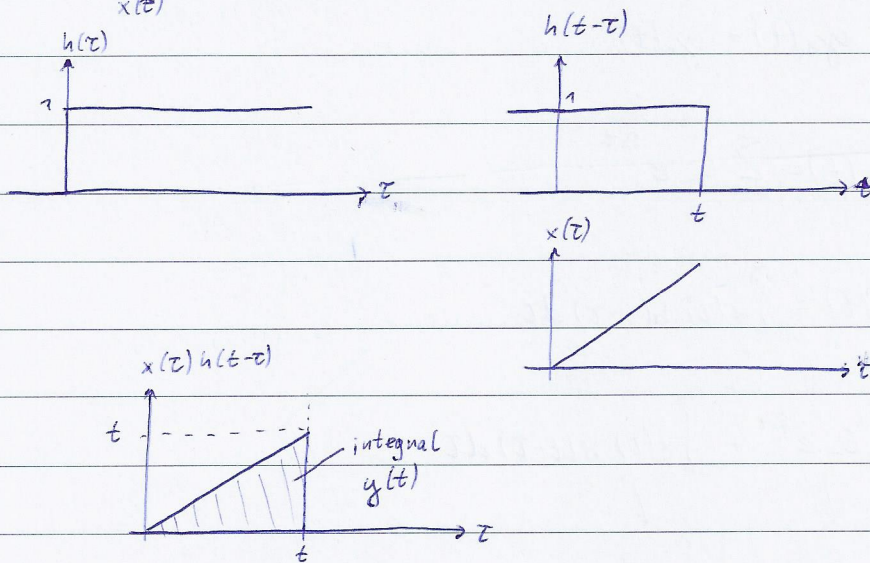 x(τ)
h(τ)
1
τ
h(t-τ)
1
t
x(τ)
τ
x(τ) h(t-τ)
t
integral
y(t)
τ
t